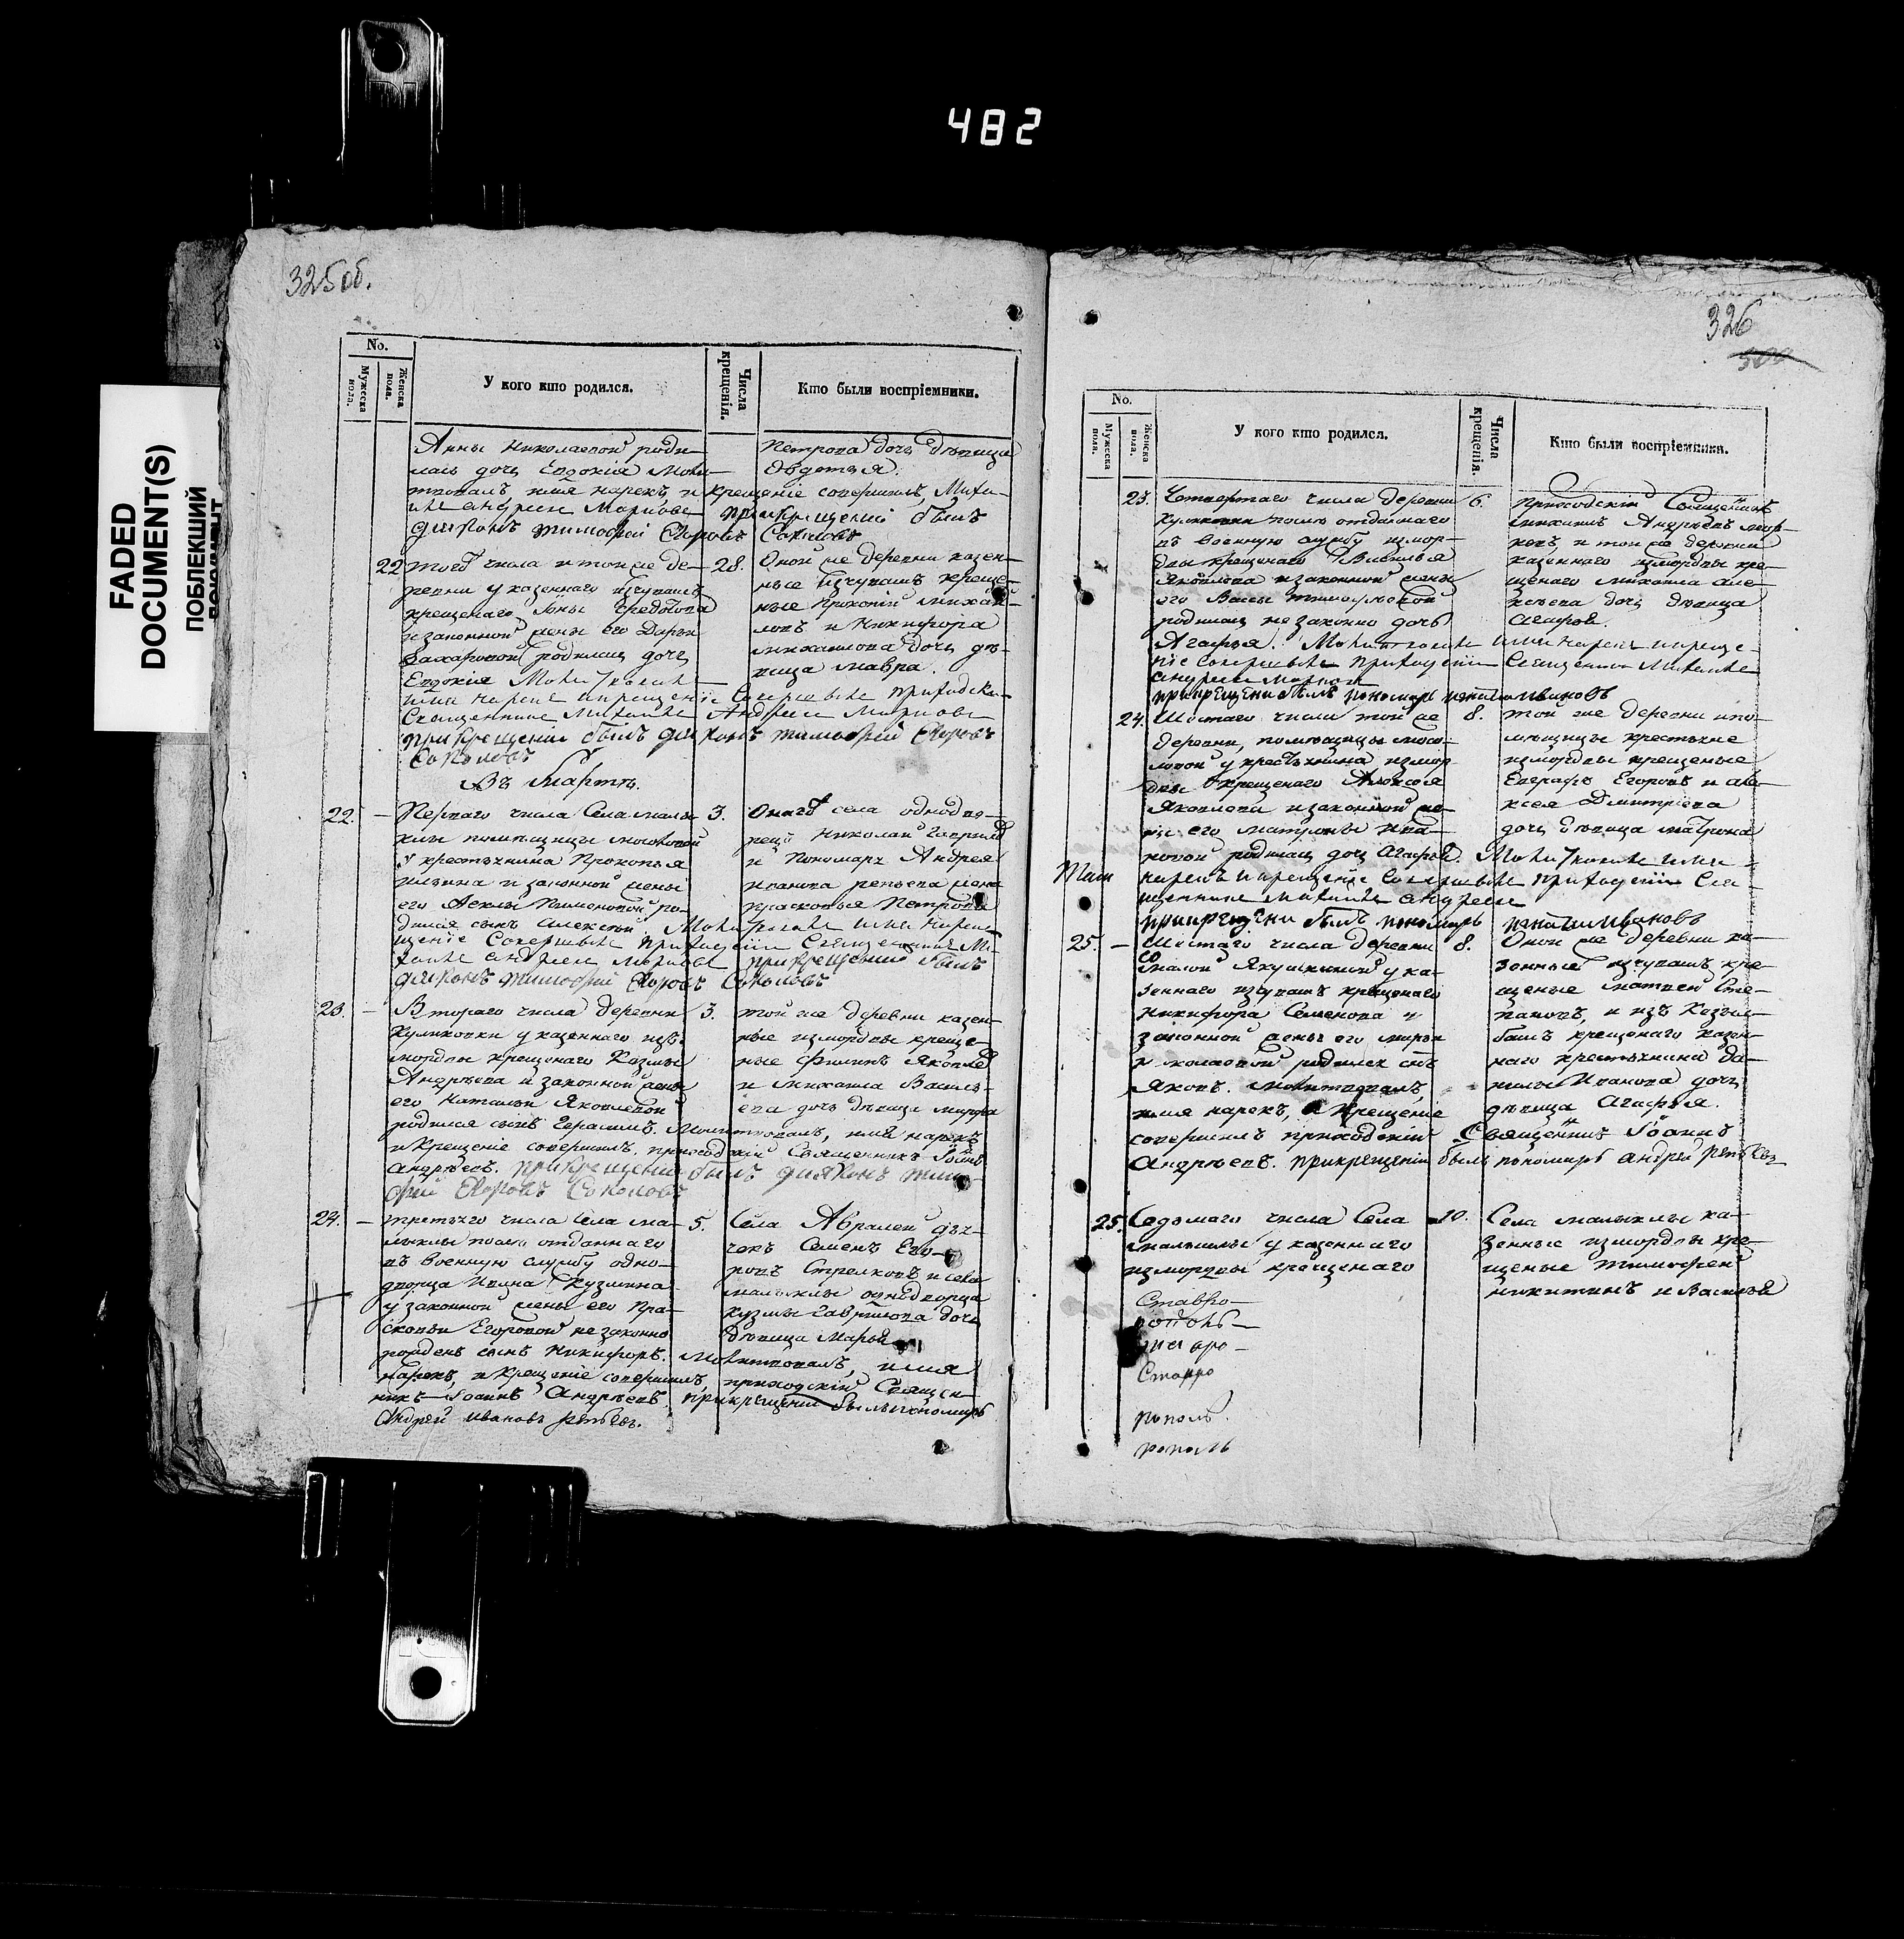 482
FADED
DOCUMENT(S)
ПОБЛЕКШИЙ
ДОКУМЕНТ
325об.
No.
Мужеска пола.
Женска пола.
У кого кто родился.
Числа крещенія.
Кто были воспріемники.
Анны Николаевой роди-
лась дочь Евдокія Моли-
твовалъ имя нарекъ, и крещеніе совершилъ, Миха-
илъ Андреевъ при крещеніи былъ
диаконъ Тимофей Егоровъ Соколовъ
Петрова дочь девица
Овдотья.
22 того числа и той же де-
ревни у казеннаго
крещенаго Ионы
и законной жены его Дарьи
Захаровой родилась дочь
Евдокія Молитвовалъ
имя нарекъ и крещеніе совершилъ приходски
Священникъ Михаилъ Андреевъ
при крещеніи былъ диаконъ Тимофей Егоровъ
Соколовъ
28. Оной же деревни казен-
ные изчувашъ креще-
ные Прокопій Михай-
ловъ и Никифора
Михаилова дочь дѣ-
вица Мавра.
Въ Мартѣ.
22. - Перваго числа Села Малы
клы помещицы
у крестьянина Прокопья
и законной жены
его Феклы Пименовой ро-
дился сынъ Алексей. Молитвовалъ имя нарекъ
щеніе совершилъ приходскій Священникъ Ми-
хаилъ Андреевъ при крещеніи былъ
диаконъ Тимофей Егоровъ Соколовъ
3. Онаго села однодво-
рецъ Николай Гаврилов
и Пономаря Андрея
Иванова Репьева жена
Прасковья Петрова
23. - Втораго числа деревни
Куликовки у казеннаго изъ
мордвы крещенаго Козмы
Андрѣева и законной жены
его Натальи Яковлевой
родился сынъ Герасимъ. Молитвовалъ, имя нарекъ
и крещеніе совершилъ приходскій Священникъ Іоаннъ
Андрѣевъ. при крещеніи былъ диаконъ Тимо-
фей Егоровъ Соколовъ
3. той же деревни казен-
ные измордвы креще-
ные Филипъ Яковлев
и Михаила Василь-
ева дочь девица Марфа
24. - третьяго числа Села Ма-
лыклы после отданнаго
въ военную службу одно-
дворца Ивана Кузмина
у законной жены его Пра-
сковьи Егоровой незаконно
рожденъ сынъ Никифоръ. Молитвовалъ, имя
нарекъ, и крещеніе совершилъ, приходскій Священ-
никъ Іоаннъ Андрѣевъ. при крещеніи былъ пономарь
Андрей Ивановъ Репьевъ.
5. Села Абрамей дья-
чекъ Семенъ Его-
ровъ Стрелковъ и села
Малыклы однодворца
Кузмы Гаврилова дочь
девица Марья
326
No.
Мужеска пола.
Женска пола.
У кого кто родился.
Числа крещенія.
Кто были воспріемники.
23. Четвертаго числа деревни
Куликовки после отданнаго
въ военную службу измор-
двы крещенаго Василья
Яковлева и законной жены
его Васы Тимофеевой
родилась незаконно дочь
Агафья. Молитвовалъ имя нарекъ и креще-
ніе совершилъ приходскій Священникъ Михаилъ
Андреевъ
при крещеніи былъ пономарь Ивановъ
6. Приходскій Священникъ
Михаилъ Андрѣевъ
и той же деревни
казеннаго измордвы кре-
щенаго Михаила Але-
ксѣева дочь девица
Агафья.
24. Шестаго числа той же
деревни, помещицы
у крестьянина измор-
двы крещенаго Алексѣя
Яковлева и законной же-
ны его Матроны Ива-
новой родилась дочь Агафья. Молитвовалъ имя
нарекъ и крещеніе совершилъ приходскій Свя-
щенникъ Михаилъ Андреевъ
при крещеніи былъ пономарь Ивановъ
8. той же деревни по-
мещицы крестьяне
измордвы крещеные
Евграфъ Егоровъ и Але-
ксея Дмитріева
дочь девица Матрона
25. - Шестаго числа деревни
Малой Якушкиной у ка-
зеннаго изчувашъ крещенаго
Никифора Семенова и
законной жены его Марьи
родился сынъ
Яковъ. Молитвовалъ,
имя нарекъ, и крещеніе
совершилъ приходскій Священникъ Іоаннъ
Андрѣевъ. при крещеніи былъ пономарь Андрей Репьевъ
8. Оной же деревни ка-
зенные изчувашъ кре-
щеные Матвей Сте-
пановъ, и изъ Козыл-
башъ крещенаго казен-
наго крестьянина Да-
нилы Иванова дочь
девица Агафья.
25. Седьмаго числа Села
Малыклы у казеннаго
измордвы крещенаго
10. Села Малыклы ка-
зенные измордвы кре-
щеные Тимофей
Никитинъ и Василья
Ставро-
Ставро
рополь.
рополь